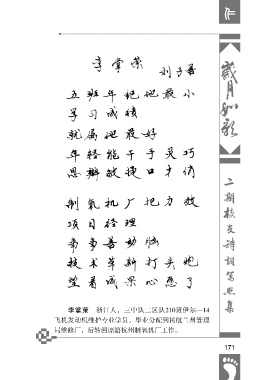 李常荣
刘子善
五班年纪他最小
学习成绩
就属他最好
年轻能干手灵巧
思辩敏捷口才俏
制氧机厂把力效
项目经理
勤事善动脑
技术革新打头炮
望着成果心悬了
李常荣 浙江人，三中队二区队210班伊尔—14
飞机发动机维护专业学员，毕业分配到民航兰州管理
局维修厂，后转回原籍杭州制氧机厂工作。
岁月如歌
二期校友诗词写照集
171